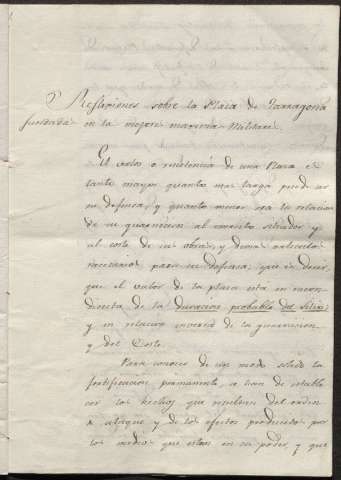 Reflexiones sobre la Plaza de Tarragona
fundada en la mejor maxima Militar.
El valor o resistencia de una Plaza es
tanto mayor quanto mas larga puede ser
su defensa, y quanto menor sea la relacion
de su guarnicion al exercito sitiador y
al coste de sus obras, y demas articulos
necesarios para su defensa, que es decir,
que el valor de la plaza esta en razon
directa de la duracion probable del sitio,
y en relacion inversa de la guarnicion
y del Coste.
Para conocer de un modo solido la
fortificacion permanente, se han de estable
cer los hechos que resultan del orden
de ataque y de los efectos producidos por
los medios que estan en su poder, y que